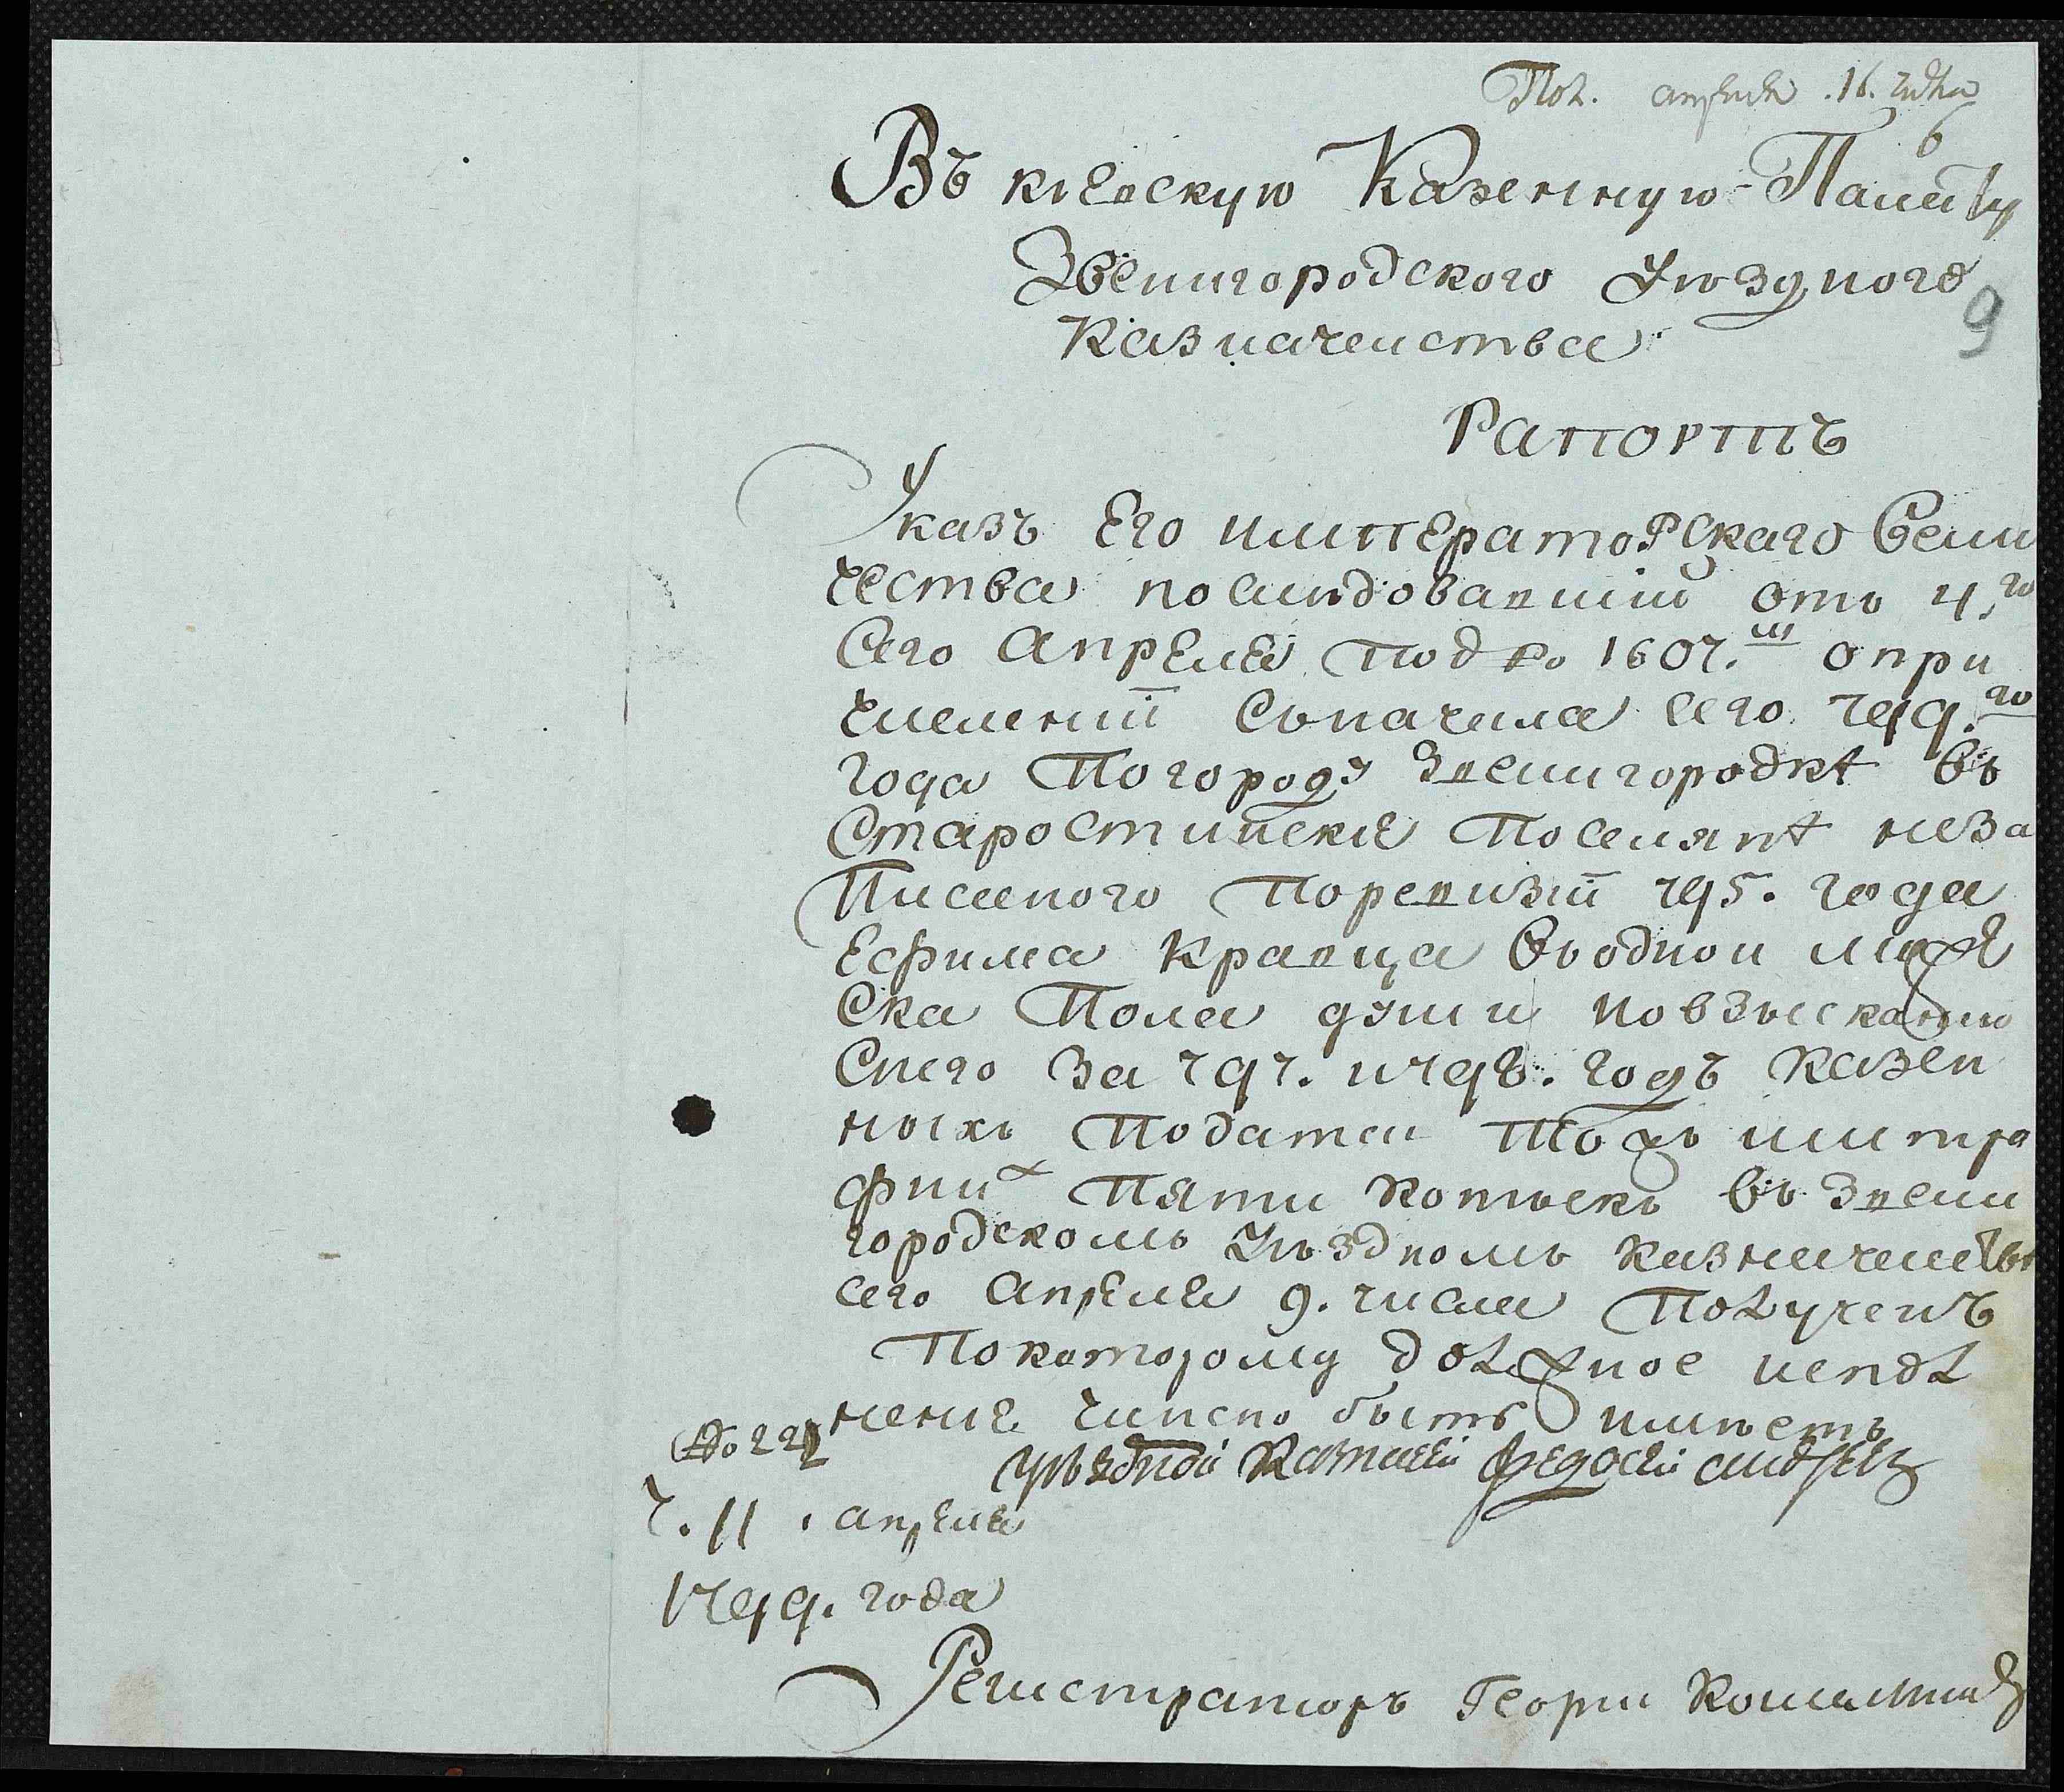 Пол. апреля .16. 799га
6
Въ киевскую Казенную Палату
Звенигородского Уезднаго
Казначейства
9
Рапортъ
Указъ Его императорскаго Вели
чества последовавший отъ 4.го
Сего апреля под № 1607.м о при
числении Съначала сего 799.го
года Погороду Звенигородкѣ въ
Старостинские Поселянѣ неза
Писаного Поревизии 795. года
Ефима Кравца Воодной муже
Ска Пола души и овзыскании
Снего за 797. и 798. годъ казен
ныхъ Податей Тожъ ишtра
фнихъ Пяти копѣекъ въ Звени
городскомъ Уѣздномъ казначействѣ
сего апреля 9. числа Полученъ
Покоторому должное испол
нение чинено быть имѣетъ
уѣздной Казначей Федосей
№ 222
Ч. 11 . апреля
1799. года
Регистраторъ Георги